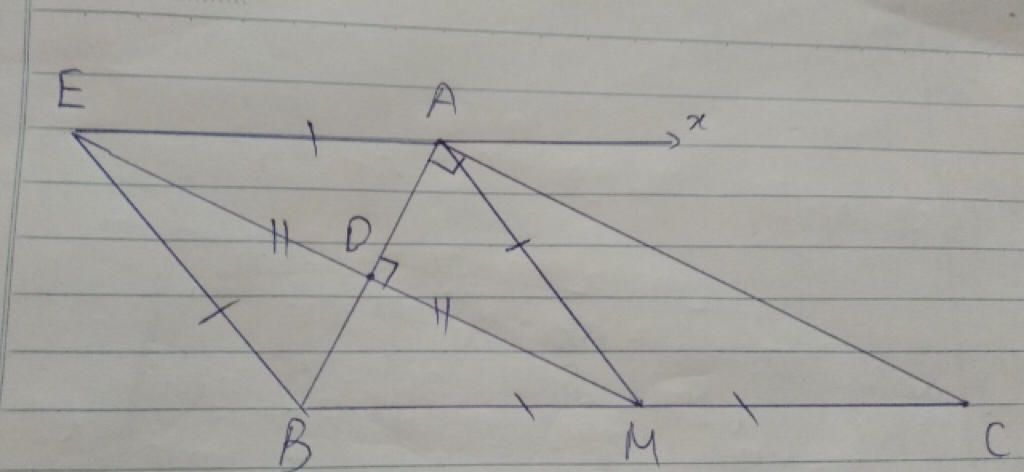 E
A
x
D
B
M
C